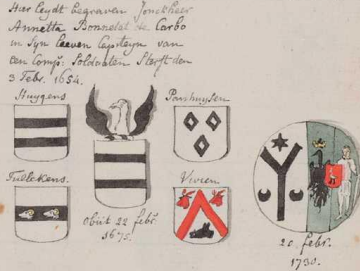 Hier leydt begraven Jonckheer
Annetta Bonnedet de Carbo
in syn Leeven Capiteyn van
een Comp: Soldaaten Sterft den
3 Febr. 1654.
Huygens
Panhuysen
Tullekens.
Vivien
Obiit 22 febr.
1675.
20. febr.
1730.